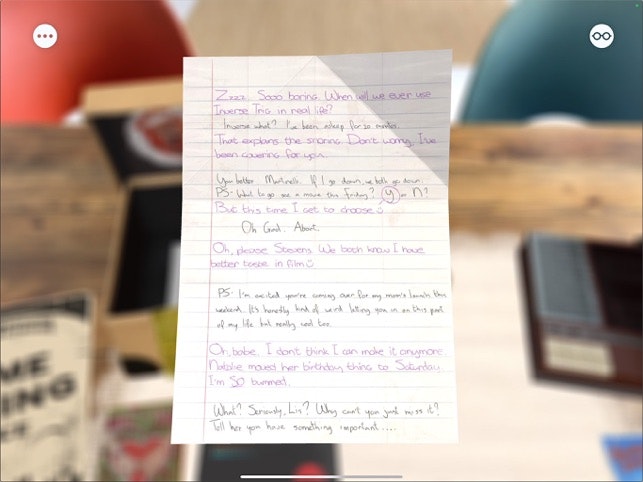 Zzzz. Sooo boring. When will we ever use
Inverse Trig in real life?
Inverse what? I've been asleep for 20 minutes.
That explains the snoring. Don't worry, I've
been covering for you.
You better Martinelli. If I go down, we both go down.
PS- Want to go see a movie this Friday? Y or N?
But this time I get to choose
Oh God. Abort.
Oh, please Stevens. We both know I have
better taste in film
PS- I'm excited you're coming over for my mom's launch this
weekend. It's honestly kind of weird letting you in on this part
of my life but really cool too.
Oh, babe. I don't think I can make it anymore.
Natalie moved her birthday thing to Saturday.
I'm SO bummed.
What? Seriously, Lis? Why can't you just miss it?
Tell her you have something important....
ME